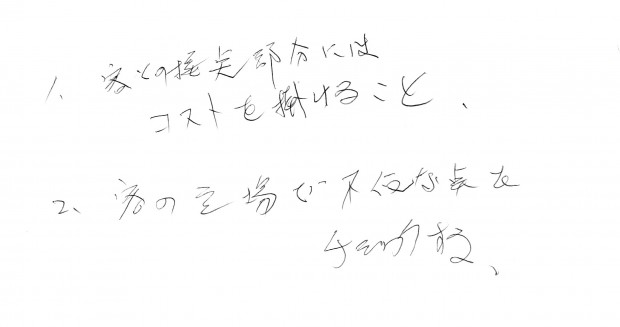 1、客との接点部分には
コストを掛けること、
2、客の立場で不便な点を
チェックする、